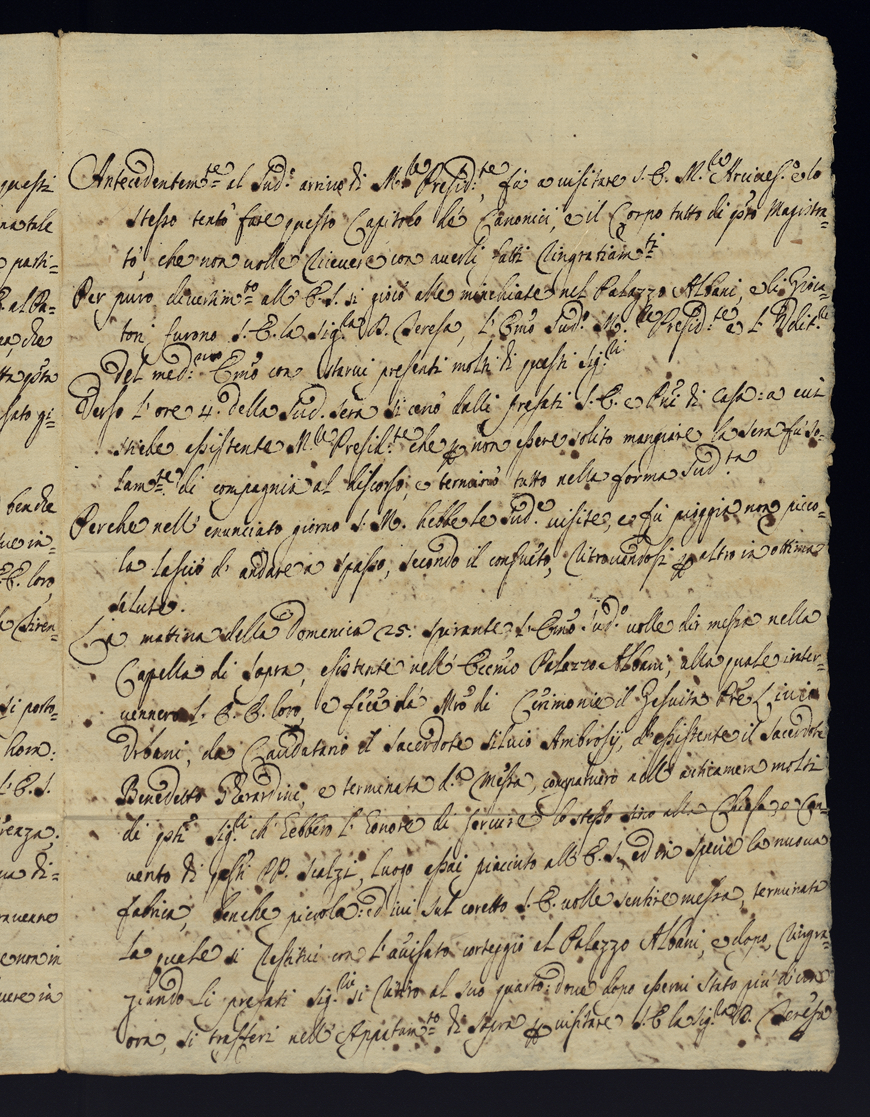 questi
Antecedentem.te al Sud.o arrivo di M.r Presid.te fù a visitare S. E. M.r Arcives.o e lo
stesso tentò fare questo Capitolo dè Canonici, e il Corpo tutto di q'sto Magistra=
to, che non volle ricevere con averli fatti ringratiam.ti
Per puro divertim.to all' E. S. si giocò alle minchiate nel Palazzo Albani, e li Gioca=
tori furono S. E. la Sig.ra D. Teresa, l' Emo Sud.o M.r Presid.te e l'
del med.mo Emo con starvi presenti molti di questi Sig.ri
Verso l' ore 4. della Sud. sera si cenò dalli prefati S. E. e P'ni di Casa: a cui
stiede assistente M.r Presid.te che p non essere solito mangiare la sera fù so=
lam.te di compagnia al discorso, e terminò tutto nella forma Sud.ta
Perche nell' enunciato giorno S. M. hebbe le Sud.e visite, e fù pioggia non picco=
la lasciò d' andare a spasso, secondo il consueto, ritrovandosi p altro in ottima
salute.
La mattina della Domenica 25. spirante l' Emo Sud.o volle dir messa nella
Capella di sopra, esistente nell' Eccmo Palazzo Albani, alla quale inter=
vennero S. E. E. loro, e fece da Mro di Cerimonie il Gesuita Pre Livio
Urbani, da Caudatario il Sacerdote Silvio Ambrosij, d' assistente il Sacerdote
Benedetto Gherardini, e terminata d.a Messa, comparvero nell' anticamera molti
di q'sti Sig.ri ch' hebbero l' honore di servire lo stesso sino alla Chiesa, e Con=
vento di q'sti PP. Scalzi, luogo assai piaciuto all' E. S. ed in specie la nuova
fabrica, benche piccola: ed ivi sul coretto S. E. volle sentire messa, terminata
la quale si restituì con l' avisato corteggio al Palazzo Albani, e dopo ringra=
ziando li prefati Sig.ri si ritirò al suo quarto: dove dopo esservi stato più d' un
ora, si trasferì nell' Appartam.to di sopra p visitare S. E. la Sig.ra D. Teresa